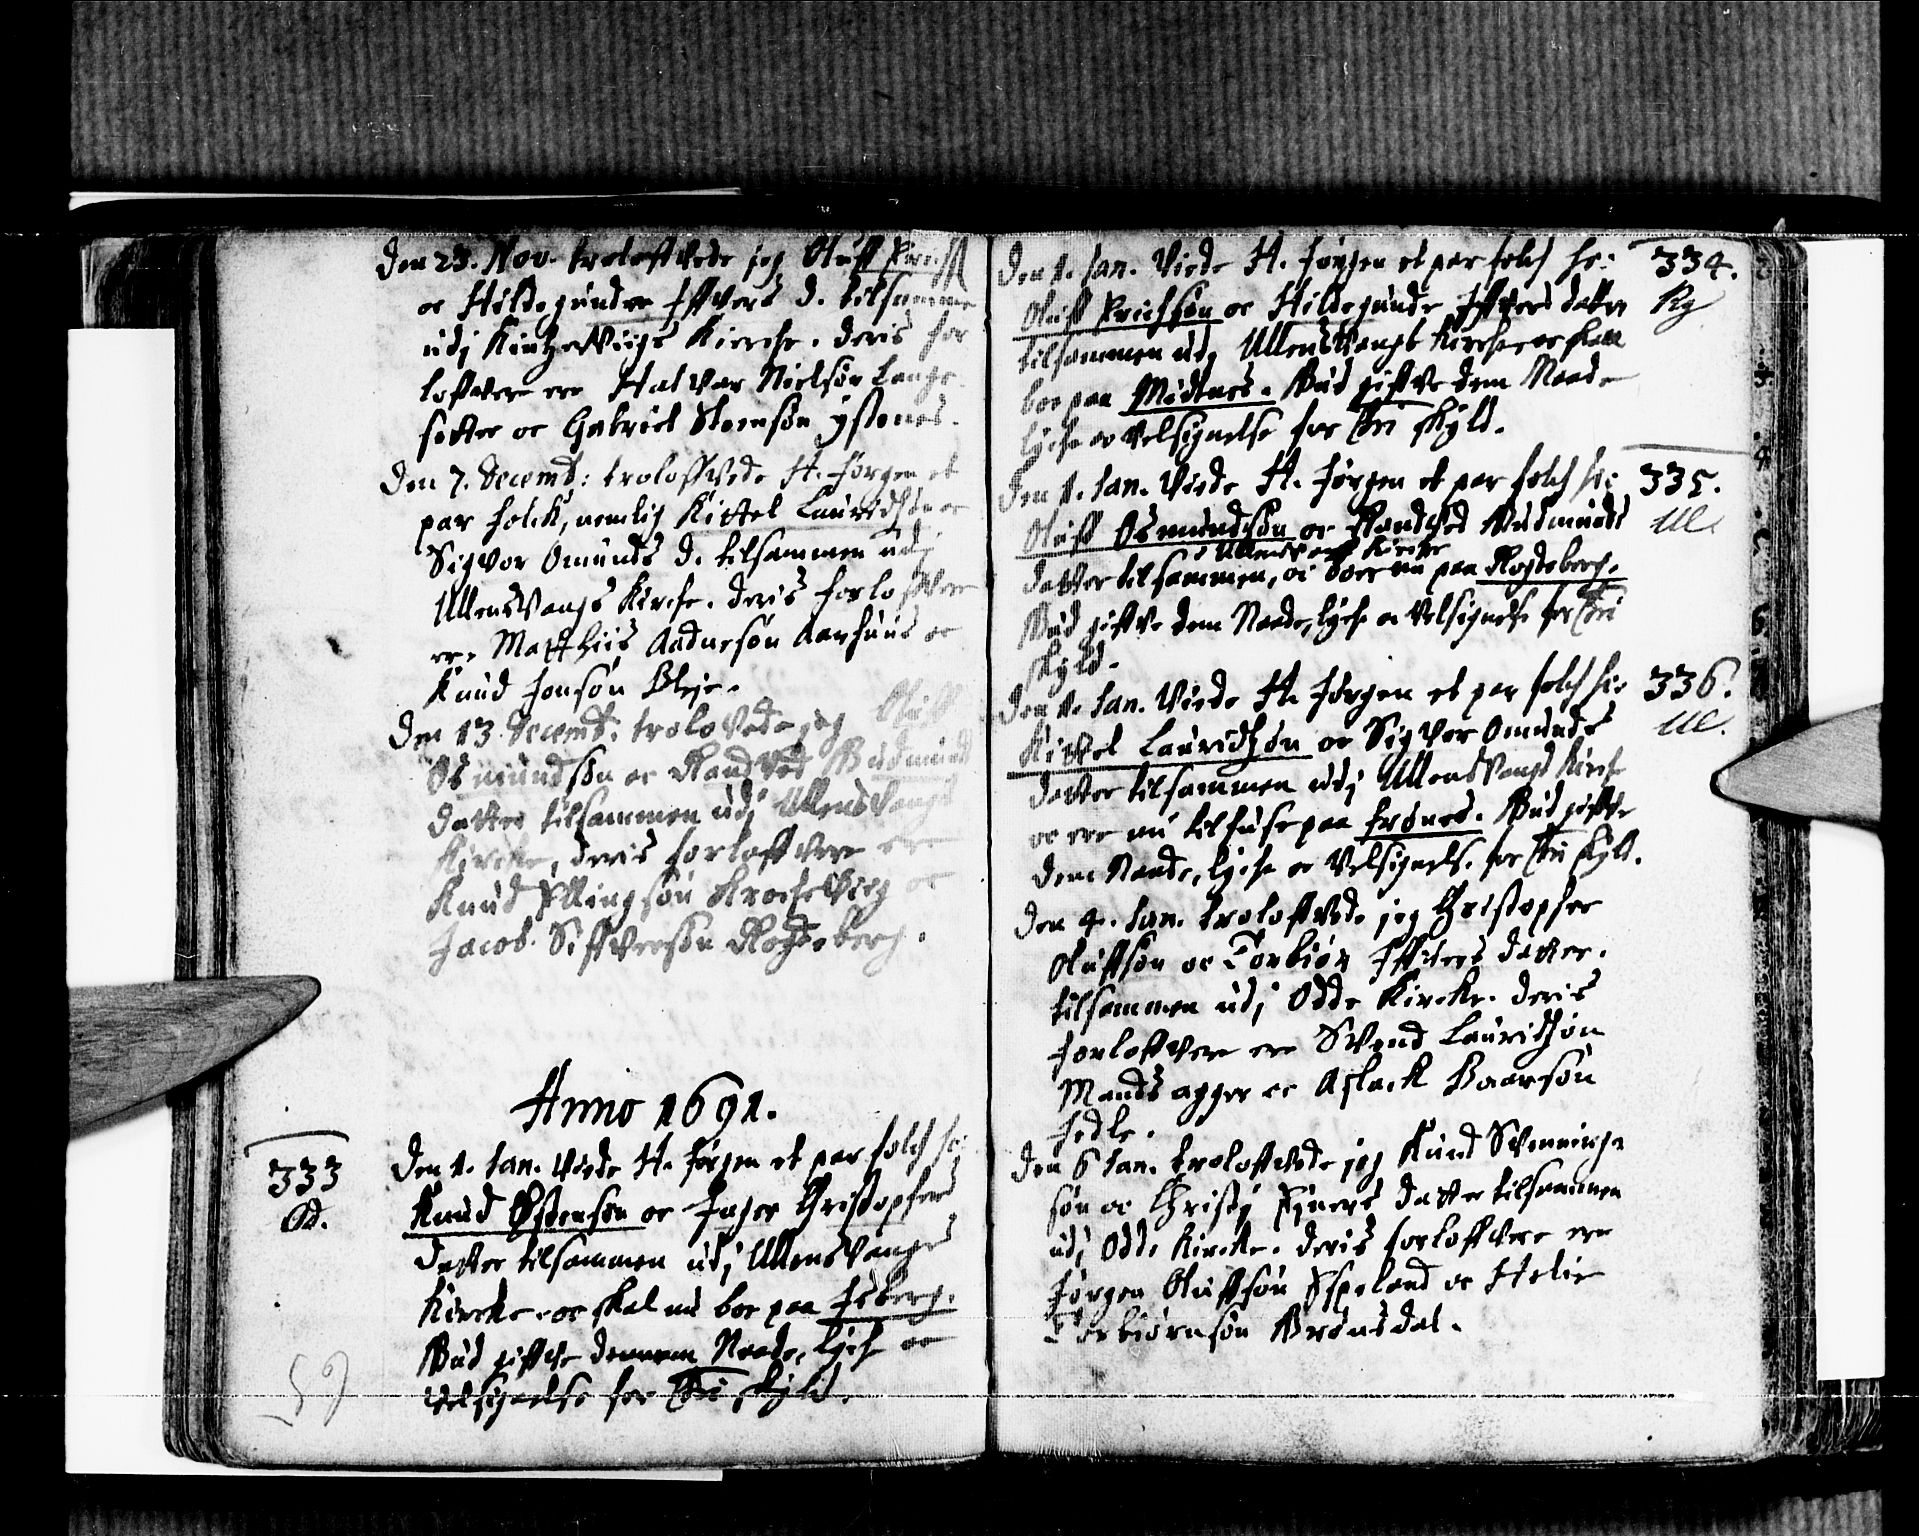 Den 23. Nov. troloffvede jeg Oluff Erichss
oc Hildegunde Iffvers d. tilsamme
udj Kintzerviigs Kierche. deris for
loffvere ere Halvor Nielsøn Lange
sætter oc Gabriel Steensøn ystenes.
Den 7. Decemb: troloffvede H. Jørgen et
par folck, nemlig Kittel Lauridsøn oc
Sigvor Omunds d. tilsammen udj
Ullensvangs Kirche. deris forloffvere
ere Matthiis Aadnesøn Aarhuus oc
Knud Jonsøn Bleje.
Den 13 Decemb: trolovede jeg Oluff
Osmundsøn oc Randved Gudmunds
datter tilsammen udj Ullensvangs
Kirche, deris forloffvere ere
Knud Ellingsøn Krochevieg oc
Jacob Siffversøn Rogdeberg.
Anno 1691.
333
Od.
Den 1. Jan. Viede H. Jørgen et par folch
Knud Østensøn oc Inger Christophers
datter tilsammen udj Ullensvangs
Kirche. oc skal nu boe paa Isberg.
Gud giffve dennem Naade, lyche oc
Velsignelse for Chri skyld.
59
Den 1. Jan. Viede H. Jørgen et par folch
334.
Kg
Oluff Erichsøn oc Hildegunde Iffvers datter
tilsammen udj Ullensvangs Kirche oc skall
boe paa Midtnes. Gud giffve dem Naade
lyche oc velsignelse for Chri skyld.
Den 1. Jan. Viede H. Jørgen et par folch
335.
Ul.
Oluff Osmundsøn oc Randved Gudmunds
i Ullensvangs Kirche
datter tilsammen, oc boer nu paa Rogdeberg.
Gud giffve dem Naade, lyche oc velsignelse for Chri
skyld.
Den 1. Jan. Viede H. Jørgen et par folch
336.
Ul.
Kittel Lauridsøn oc Sigvor Omunds
datter tilsammen udj Ullensvangs Kirche
oc ere nu tilhuse paa Frønes. Gud giffve
dem Naade, lyche oc Velsignels. for Chri skyld.
Den 4. Jan. troloffvede jeg Christopher
Oluffsøn oc Torbiør Iffvers datter.
tilsammen udj Odde Kirche. deris
forloffvere ere Svend Lauridsøn
Mandsagger oc Aslack Baarsøn
Jedle.
Den 6 Jan. troloffvede jeg Knud Svenninge
søn oc Christj Ejners datter tilsammen
udj Odde Kirche. deris forloffvere ere
Jørgen Oluffsøn Espeland oc Helie
Torbiørnsøn Brønsdal.